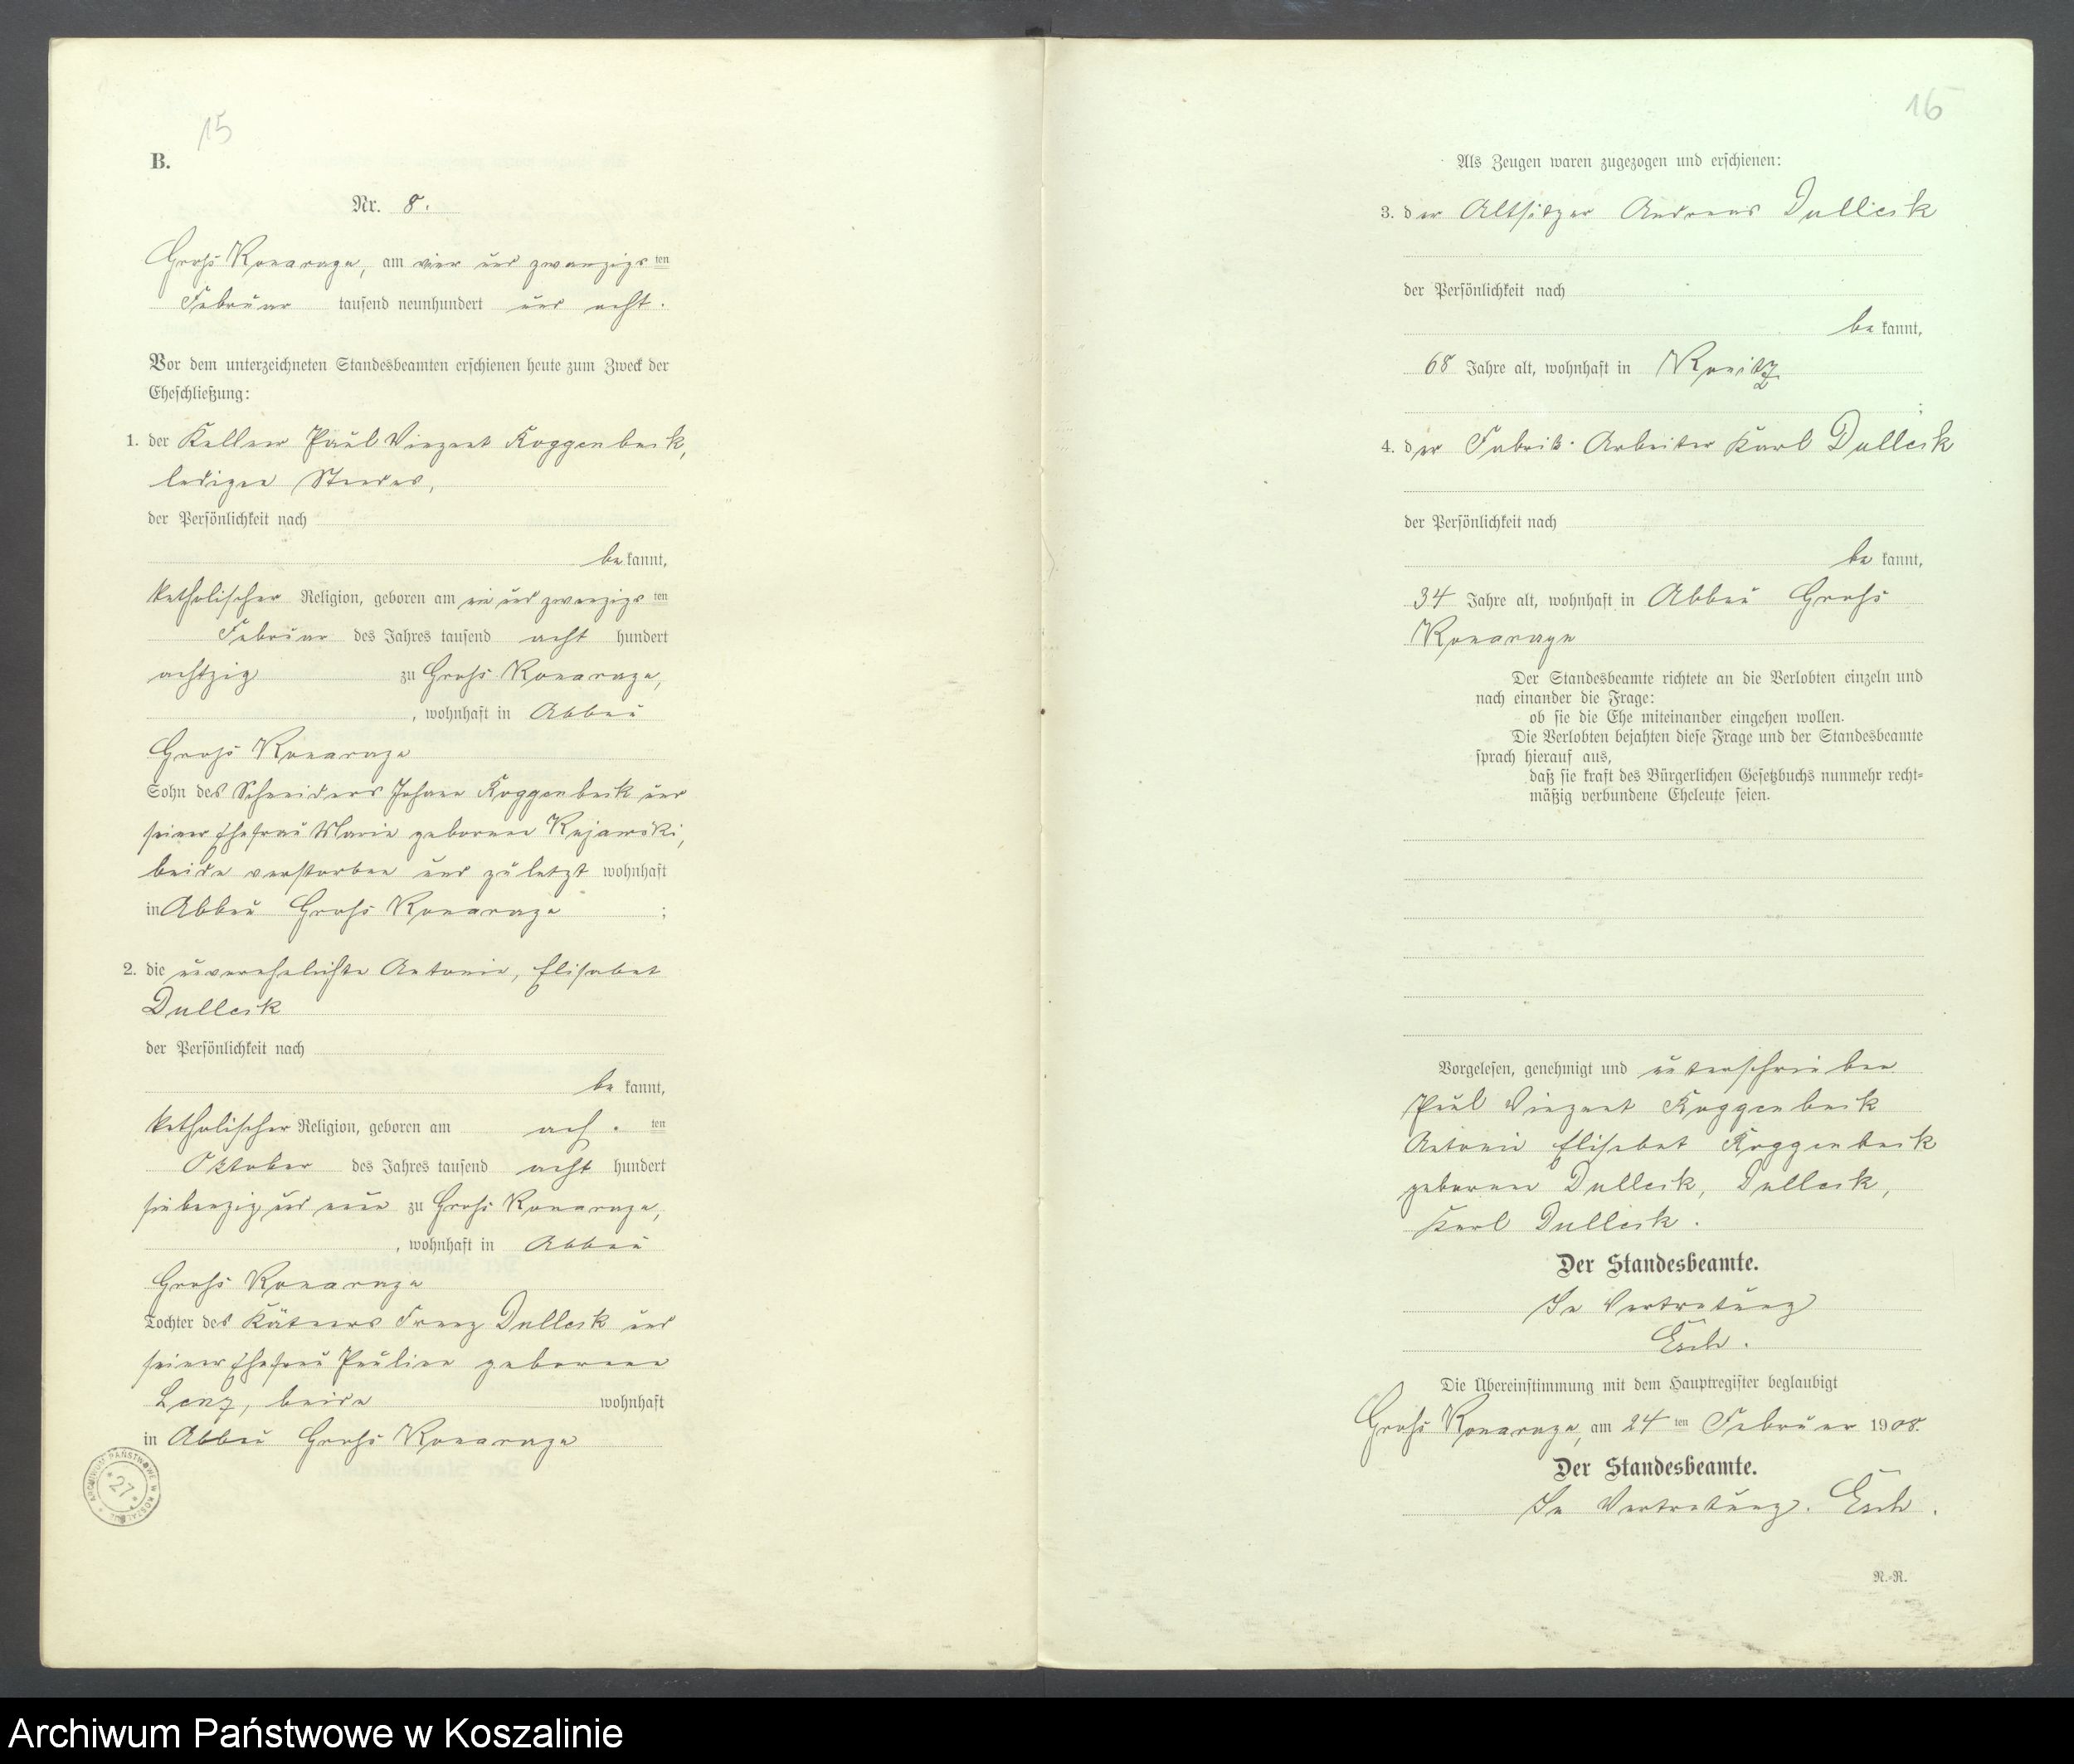 15
B.
Nr. 8.
Groß Konarczyn, am vier und zwanzigsten
Februar tausend neunhundert und acht.
Vor dem unterzeichneten Standesbeamten erschienen heute zum Zweck der
Eheschließung:
1. der Kellner Paul Vinzent Roggenbuck,
ledigen Standes,
der Persönlichkeit nach
bekannt,
katholischer Religion, geboren am ein und zwanzigsten
Februar des Jahres tausend acht hundert
achtzig zu Groß Konarczyn,
, wohnhaft in Abbau
Groß Konarczyn
Sohn des Schneiders Johann Roggenbuck und
seiner Ehefrau Marie geborene Kujawski,
beide verstorben und zuletzt wohnhaft
in Abbau Groß Konarczyn ;
2. die unverehelichte Antonie, Elisabet
Dulleck
der Persönlichkeit nach
bekannt,
katholischer Religion, geboren am ach. ten
Oktober des Jahres tausend acht hundert
siebenzig und neun zu Groß Konarczyn,
, wohnhaft in Abbau
Groß Konarczyn
Tochter des Kätners Franz Dulleck und
seiner Ehefrau Pauline geborene
Lenz, beide wohnhaft
in Abbau Groß Konarczyn
ARCHIWUM PAŃSTWOWE W KOSZALINIE
* 27 *
16
Als Zeugen waren zugezogen und erschienen:
3. der Altsitzer Andreas Dulleck
der Persönlichkeit nach
bekannt,
68 Jahre alt, wohnhaft in Konitz
;
4. der Fabrik-Arbeiter Karl Dulleck
der Persönlichkeit nach
bekannt,
34 Jahre alt, wohnhaft in Abbau Groß
Konarczyn
Der Standesbeamte richtete an die Verlobten einzeln und
nach einander die Frage:
ob sie die Ehe miteinander eingehen wollen.
Die Verlobten bejahten diese Frage und der Standesbeamte
sprach hierauf aus,
daß sie kraft des Bürgerlichen Gesetzbuchs nunmehr recht-
mäßig verbundene Eheleute seien.
Vorgelesen, genehmigt und unterschrieben
Paul Vinzent Roggenbuck
Antonie Elisabet Roggenbuck
geborene Dulleck, Dulleck,
Karl Dulleck.
Der Standesbeamte.
In Vertretung
Esch.
Die Übereinstimmung mit dem Hauptregister beglaubigt
Groß Konarczyn, am 24 ten Februar 1908.
Der Standesbeamte.
In Vertretung. Esch.
N.-R.
Archiwum Państwowe w Koszalinie